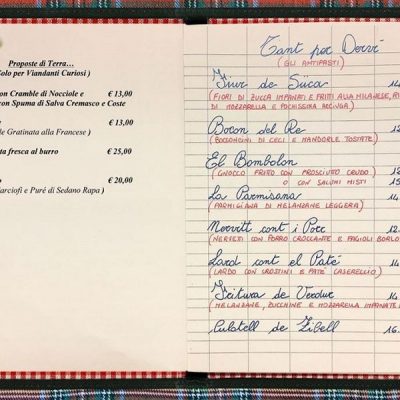 Proposte di Terra…
Solo per Viandanti Curiosi )
con Cramble di Nocciole e € 13,00
con Spuma di Salva Cremasco e Coste
€ 13,00
le Gratinata alla Francese )
ta fresca al burro € 25,00
€ 20,00
Carciofi e Purè di Sedano Rapa )
Tant per Dervì
(GLI ANTIPASTI)
Fiur de Süca 14
(FIORI DI ZUCCA IMPANATI E FRITTI ALLA MILANESE,
DI MOZZARELLA E POCHISSIMA ACCIUGA)
Bocon del Re 12
(BOCCONCINI DI CECI E MANDORLE TOSTATE)
El Bombolon
(GNOCCO FRITTO CON PROSCIUTTO CRUDO) 12
O CON SALUMI MISTI 15
La Parmisana 14
(PARMIGIANA DI MELANZANE LEGGERA)
Nervitt cont i Porr 12.
(NERVETTI CON PORRO CROCCANTE E FAGIOLI BORLO
Lard cont el Patè 14
(LARDO CON CROSTINI E PATE' CASERECCIO)
Fritura de Verdur 14
(MELANZANE, ZUCCHINE E MOZZARELLA IMPANATE
Culatell de Zibell 16.